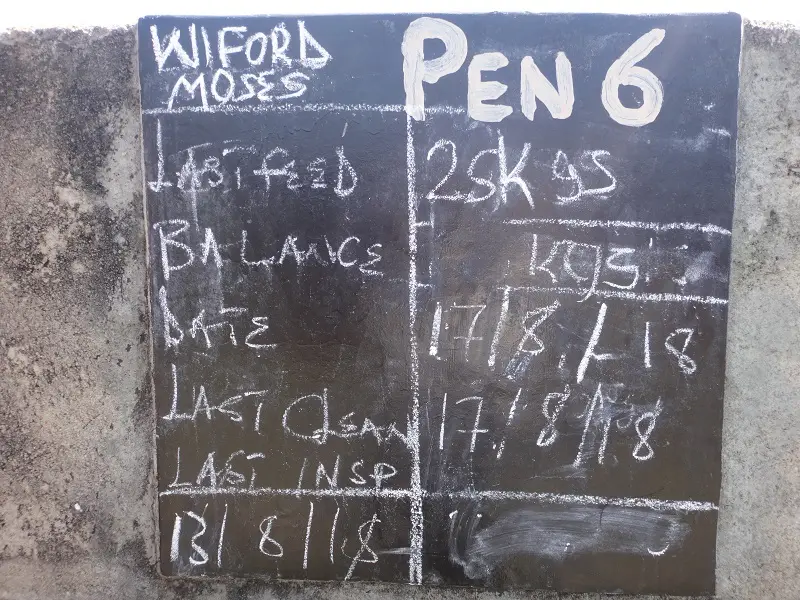 WIFORD PEN 6
MOSES
LAST FEED 25Kgs
BALANCE Kgs
DATE 17/8/18
LAST CLEAN 17/8/18
LAST INSP
13/8/18